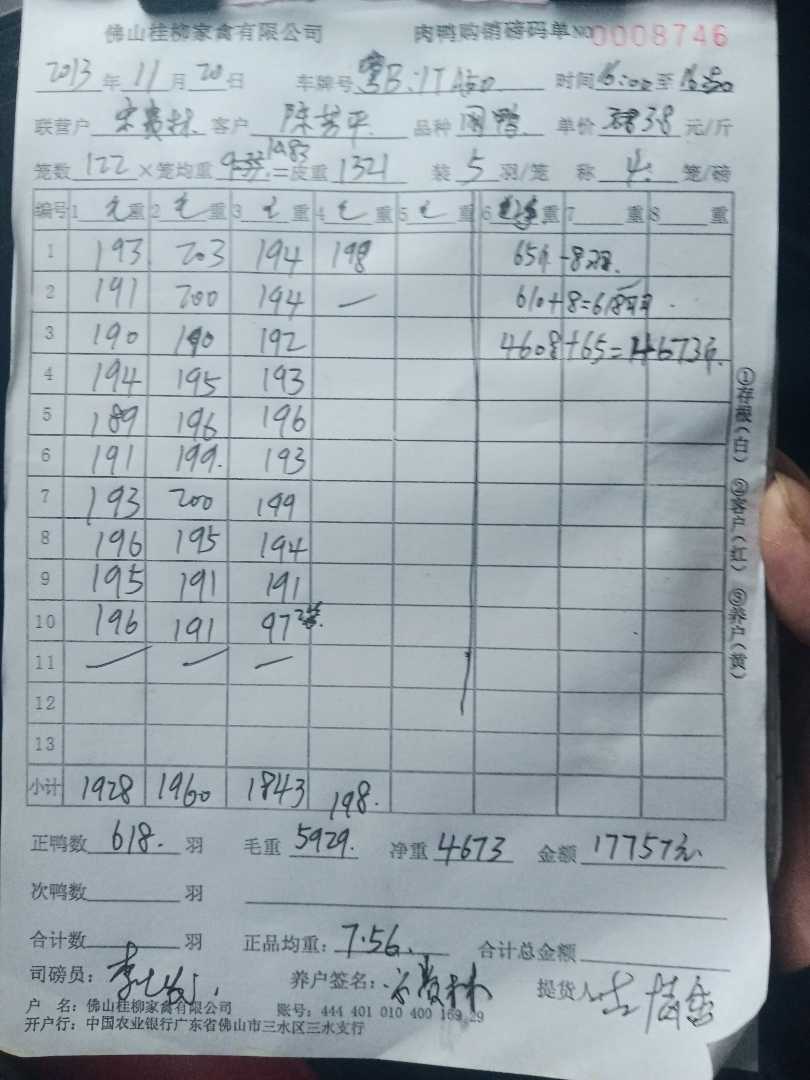 佛山桂柳家禽有限公司 肉鸭购销磅码单 NO 0008746
2013 年 11 月 20 日 车牌号 时间 16:00 至
联营户 客户 陈芳平 品种 单价 3.8 元/斤
笼数 122 × 笼均重 = 皮重 1321 装 5 羽/笼 称 4 笼/磅
编号 1 毛 重 2 毛 重 3 毛 重 4 毛 重 5 毛 重 6 重 7 重 8 重
1 193 203 194 198 65斤-8羽.
2 191 200 194 — 610+8=618羽.
3 190 190 192 4608+65=4673斤.
4 194 195 193
5 189 196 196
6 191 199. 193
7 193 200 199
8 196 195 194
9 195 191 191
10 196 191 97
11 — — —
12
13
小计 1928 1960 1843 198.
正鸭数 618. 羽 毛重 5929. 净重 4673 金额 17757元
次鸭数 羽
合计数 羽 正品均重: 7.56. 合计总金额
司磅员: 养户签名: 提货人:
户 名: 佛山桂柳家禽有限公司 账号: 444 401 010 400 169 29
开户行: 中国农业银行广东省佛山市三水区三水支行
①存根(白) ②客户(红) ③养户(黄)